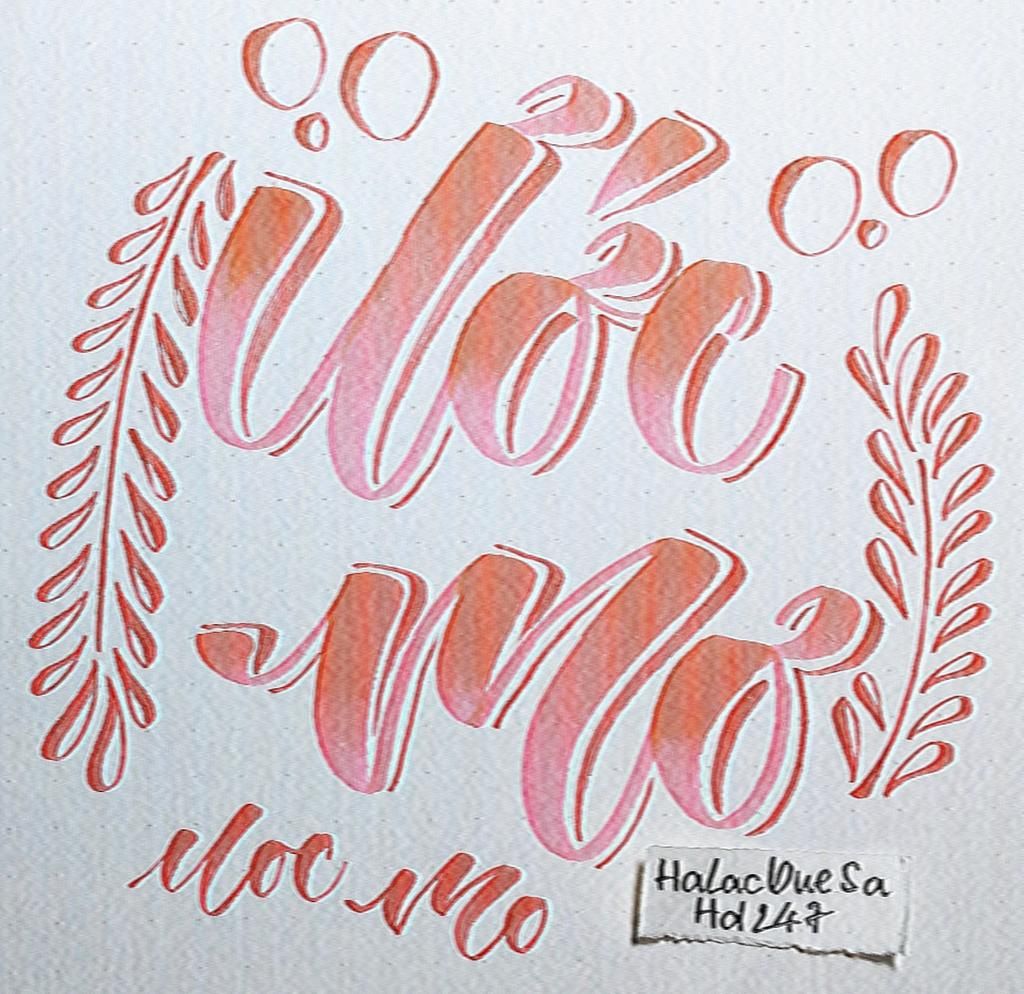 Ước
mơ
Uoc mo
HaLacDueSa
Hd247